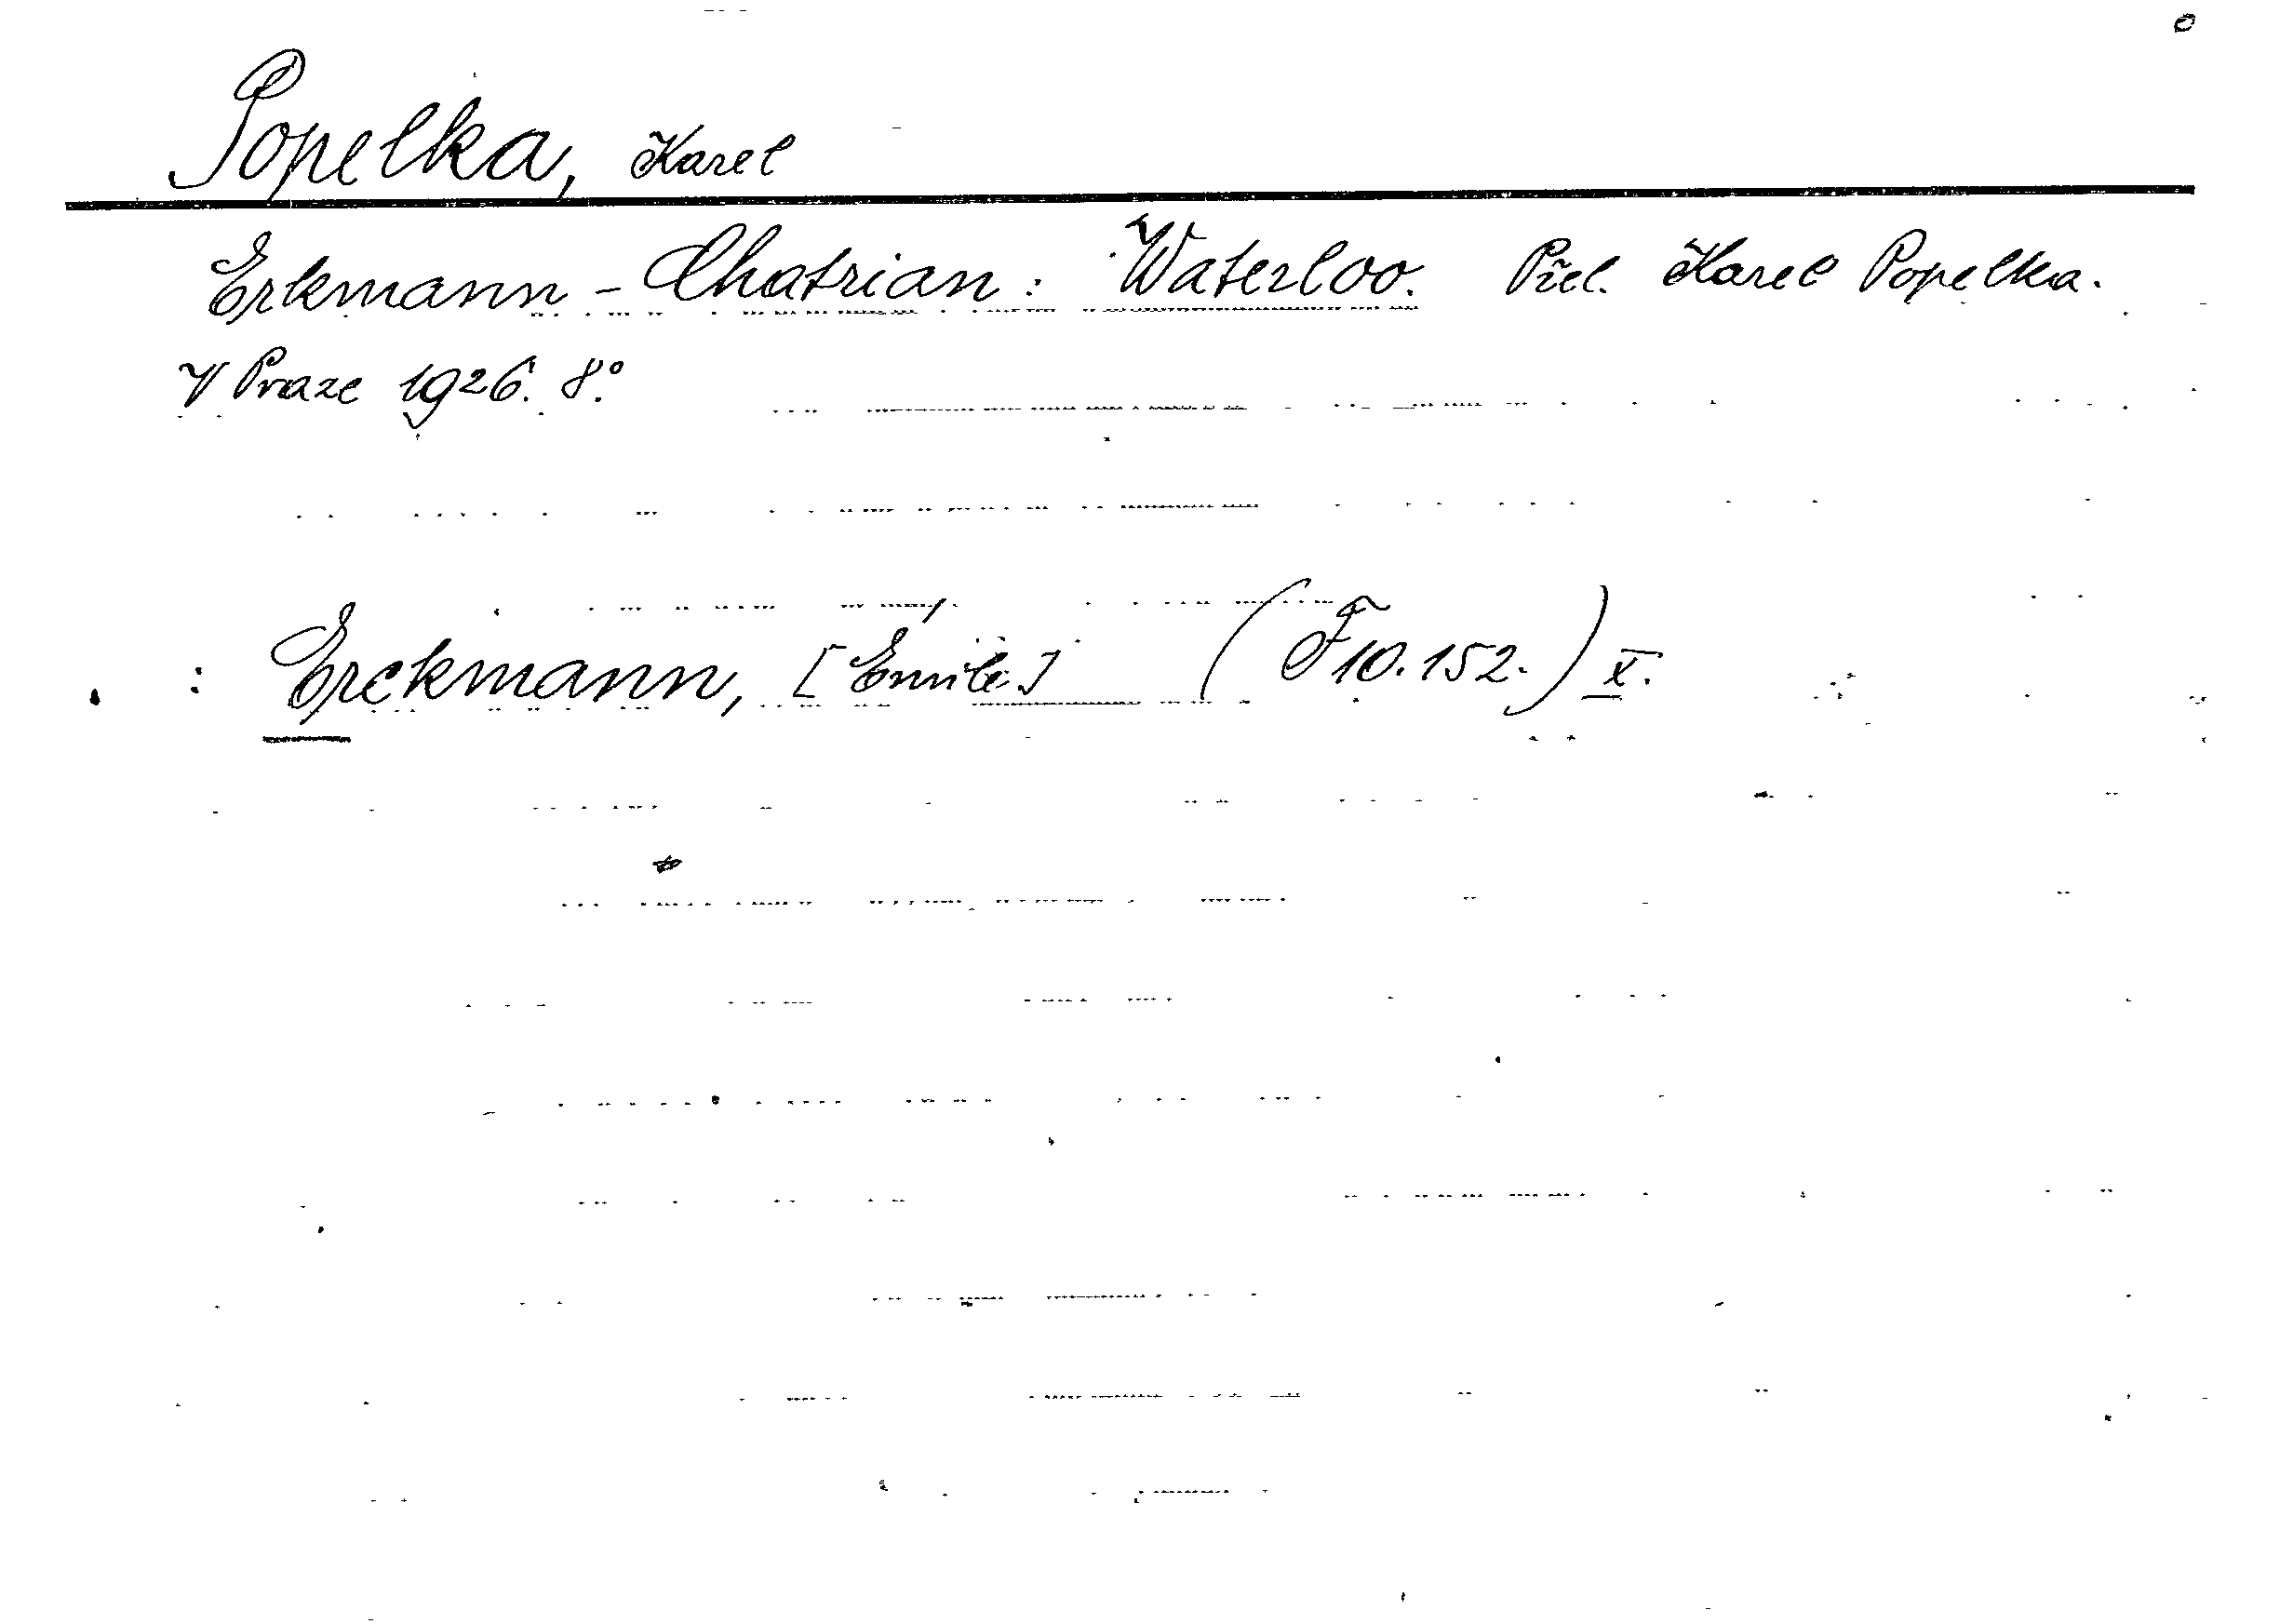 Popelka, Karel
Erkmann - Chatrian: Waterloo. Přel. Karel Popelka.
V Praze 1926. 8°.
: Erckmann, [Émile] (F 10.152.) X.